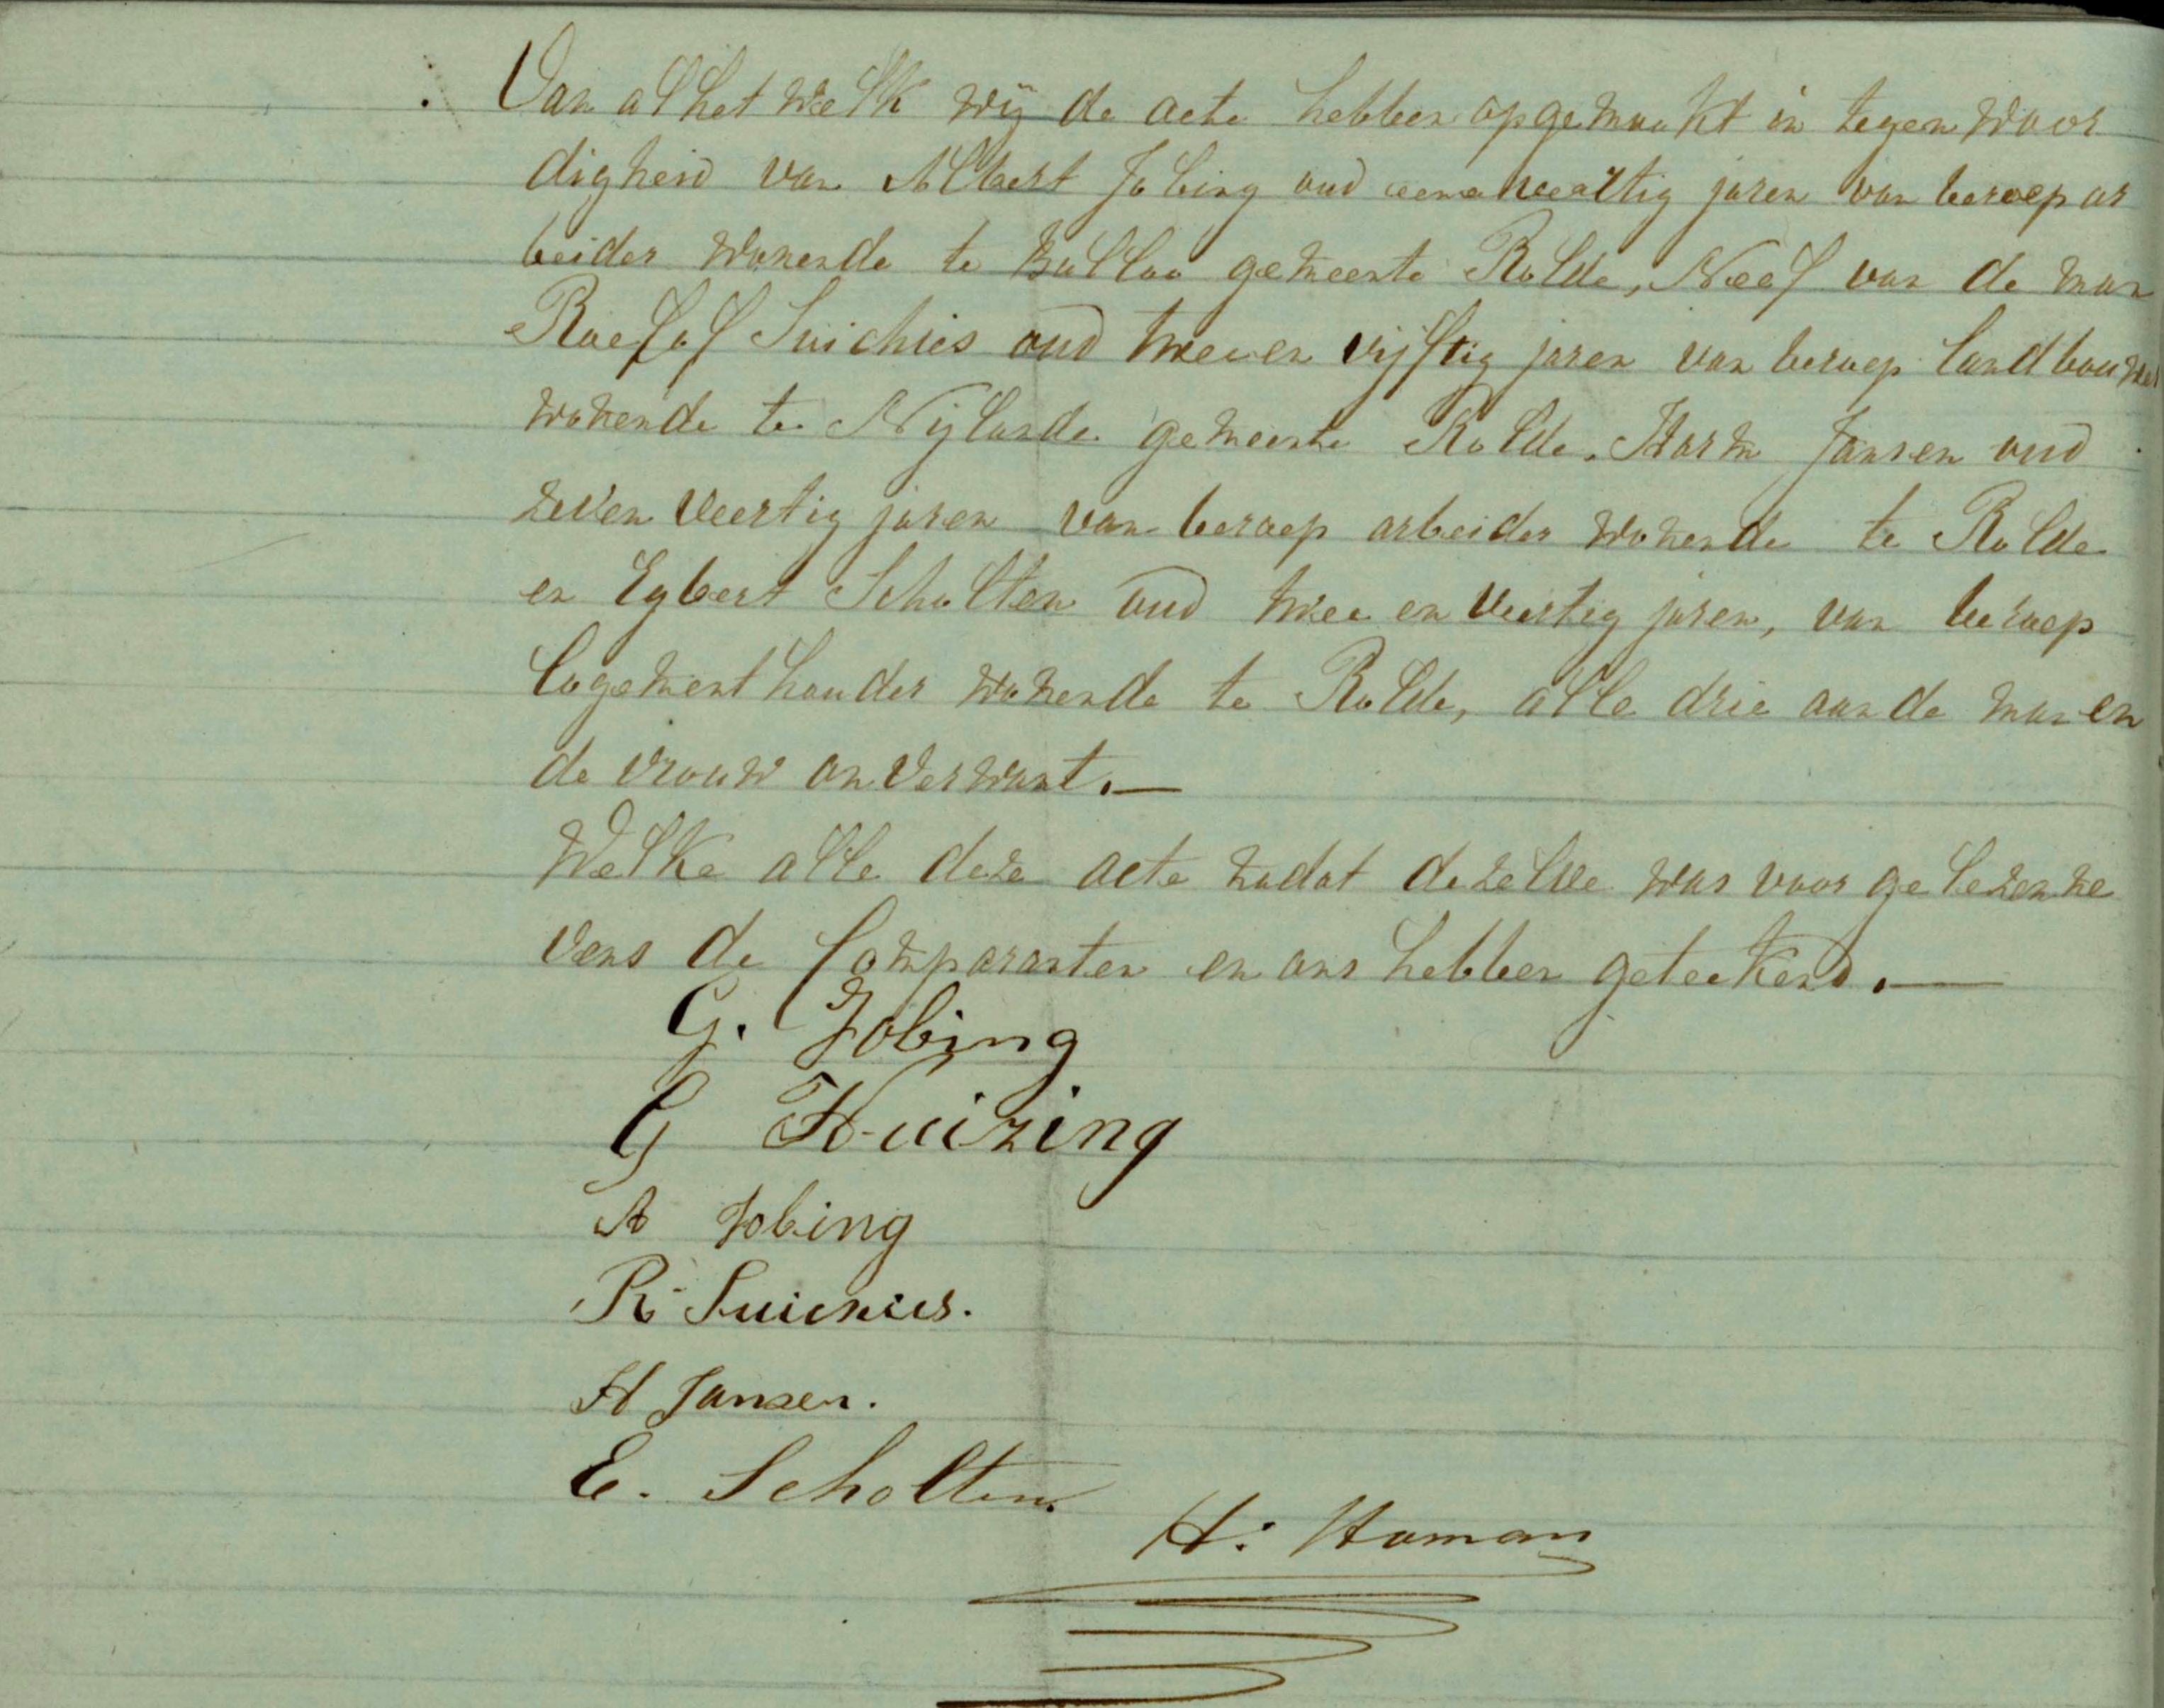 Van al het welk wij de acte hebben opgemaakt in tegenwoor
digheid van Albert Jobing oud eenenveertig jaren van beroep ar
beider wonende te Balloo gemeente Rolde, Neef van de man
Roelof Suichies oud twee en vijftig jaren van beroep landbouwer
wonende te Nijlande gemeente Rolde, Harm Jansen oud
zeven veertig jaren van beroep arbeider wonende te Rolde
en Egbert Scholten oud twee en veertig jaren, van beroep
logementhouder wonende te Rolde, alle drie aan de man en
de vrouw onverwant.—
Welke alle deze acte nadat dezelve was voorgelezen ne
vens de Comparanten en ons hebben geteekend.—
G. Jobing
G Huizing
A Jobing
R Suichies.
H Jansen.
E. Scholten.
H. Homan